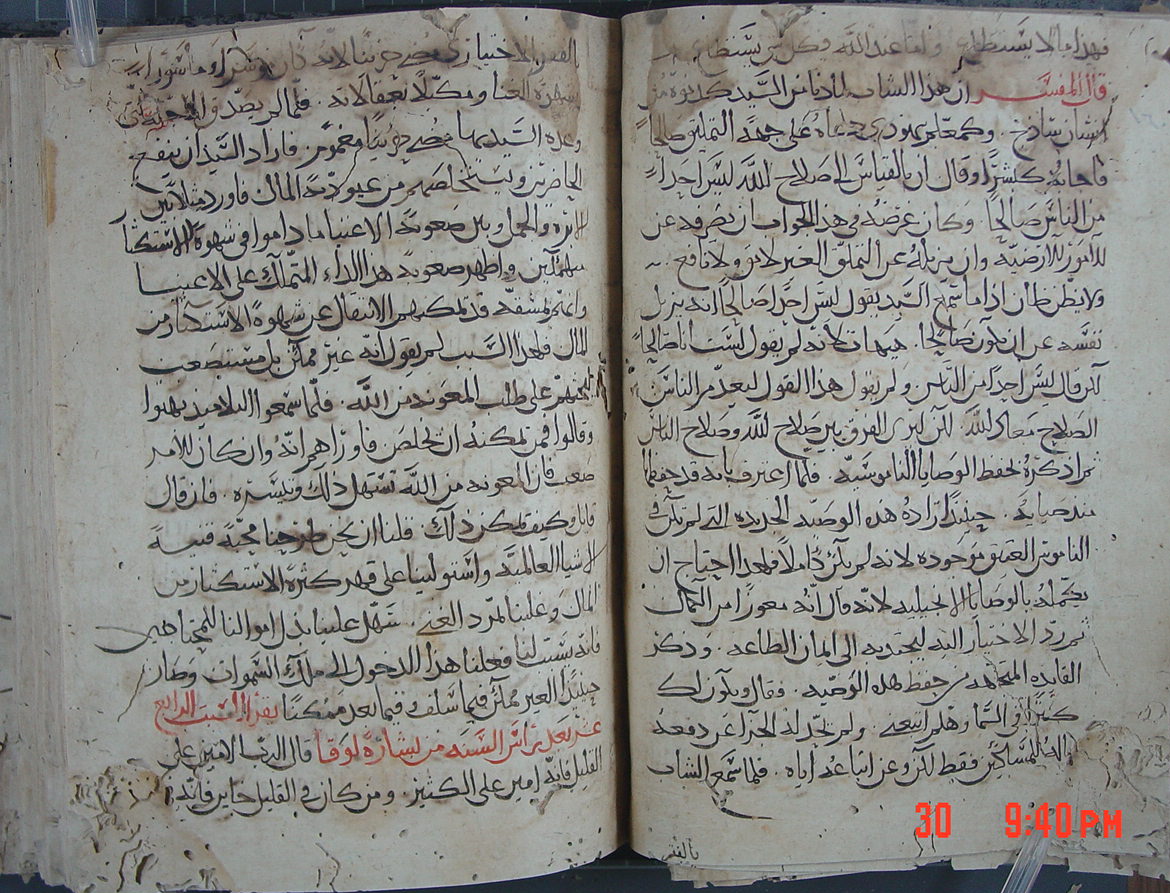 فهذا ما لا يستطاع واما عند الله وكل شي يستطاع
قال المفسر ان هذا الشاب لما دنا من السيد
الشاب ساذج . وكمعلم بهودي دعاه على جهة التمليق صالحا
فاجابه كبشر وقال ان بالقياس الى صلاح الله ليس احدا
من الناس صالحا وكان غرضه في هذا الجواب ان يصرفه عن
الامور الارضيه وان يزيله عن التملق الغير لايق ولا نافع
ولا يظن ظان اذا ما سمع السيد يقول ليس احدا صالحا انه يزيل
نفسه عن ان يكون صالحا . هيهات لانه لم يقول لست انا صالحا
لكن قال ليس احدا من الناس ولم يقول هذا القول ليعدم الناس
الصلاح معاد الله لكن ليري الفرق بين صلاح الله وصلاح الناس
ثم اذكره بحفظ الوصايا الناموسيه . فلما اعترف بانه قد حفظها
منذ صباه . حينئذ زاده هذه الوصيه الجديده التي لم تكن في
الناموس العتيق موجوده لانه لم يكن كاملا فلهذا احتاج ان
يكمله بالوصايا الانجيليه لانه قال انه معوز من الكمال
ثم رد الاختيار اليه ليجتذبه الى ايمان الطاعه . وذكر
الفايده المتجهه من حفظ هذه الوصيه . وقال ويكون لك
كنزا في السما وهلم اتبعني ولم يحد له الجزا عن دفعه
ماله للمساكين فقط لكن وعن اتباعه اياه . فلما سمع الشاب
بالفقر
الفقر الاختياري مضى حزينا لانه كان
بشهوة الغنا ومكبلا بمحبة الاته . فلما لم يصدق
وعده السيد بها مضى حزينا مغموم . فاراد السيد ان ينفع
الحاضرين ويستخلصهم من عبودية المال فاورد مثل
الابره والجمل وبين صعوبة الاغنيا ما داموا في شهوة الاستكثار
واظهر صعوبة هذا الداء المتملك على الاغنيا
قد يمكنهم الانتقال عن شهوة الاستكثار من
المال فلهذا السبب لم يقول انه غير ممكن بل مستصعب
على طلب المعونه من الله . فلما سمعوا التلاميذ بهتوا
وقالوا فمن يمكنه ان يخلص فاوراهم انه وان كان الامر
صعب فان المعونه من الله تستهل ذلك وتيسره . فان قال
قايل وكيف يمكن ذلك قلنا ان نحن طرحنا محبة قنية
الاشيا العالميه واستولينا على قهر كثرة الاستكثار من
المال وغلبنا المرد الغني . سهل علينا بذل اموالنا للمحتاجين
فانه يثبت لنا فعلنا هذا الدخول الى ملك السموات وصار
حينئذ الغير ممكن فيما سلف وفيما بعد ممكنا يقرا السبت الرابع
عشر بعد راس السنه من بشارة لوقا قال الرب الامين على
القليل فانه امين على الكثير . ومن كان في القليل جاير فانه
30 9:40 PM